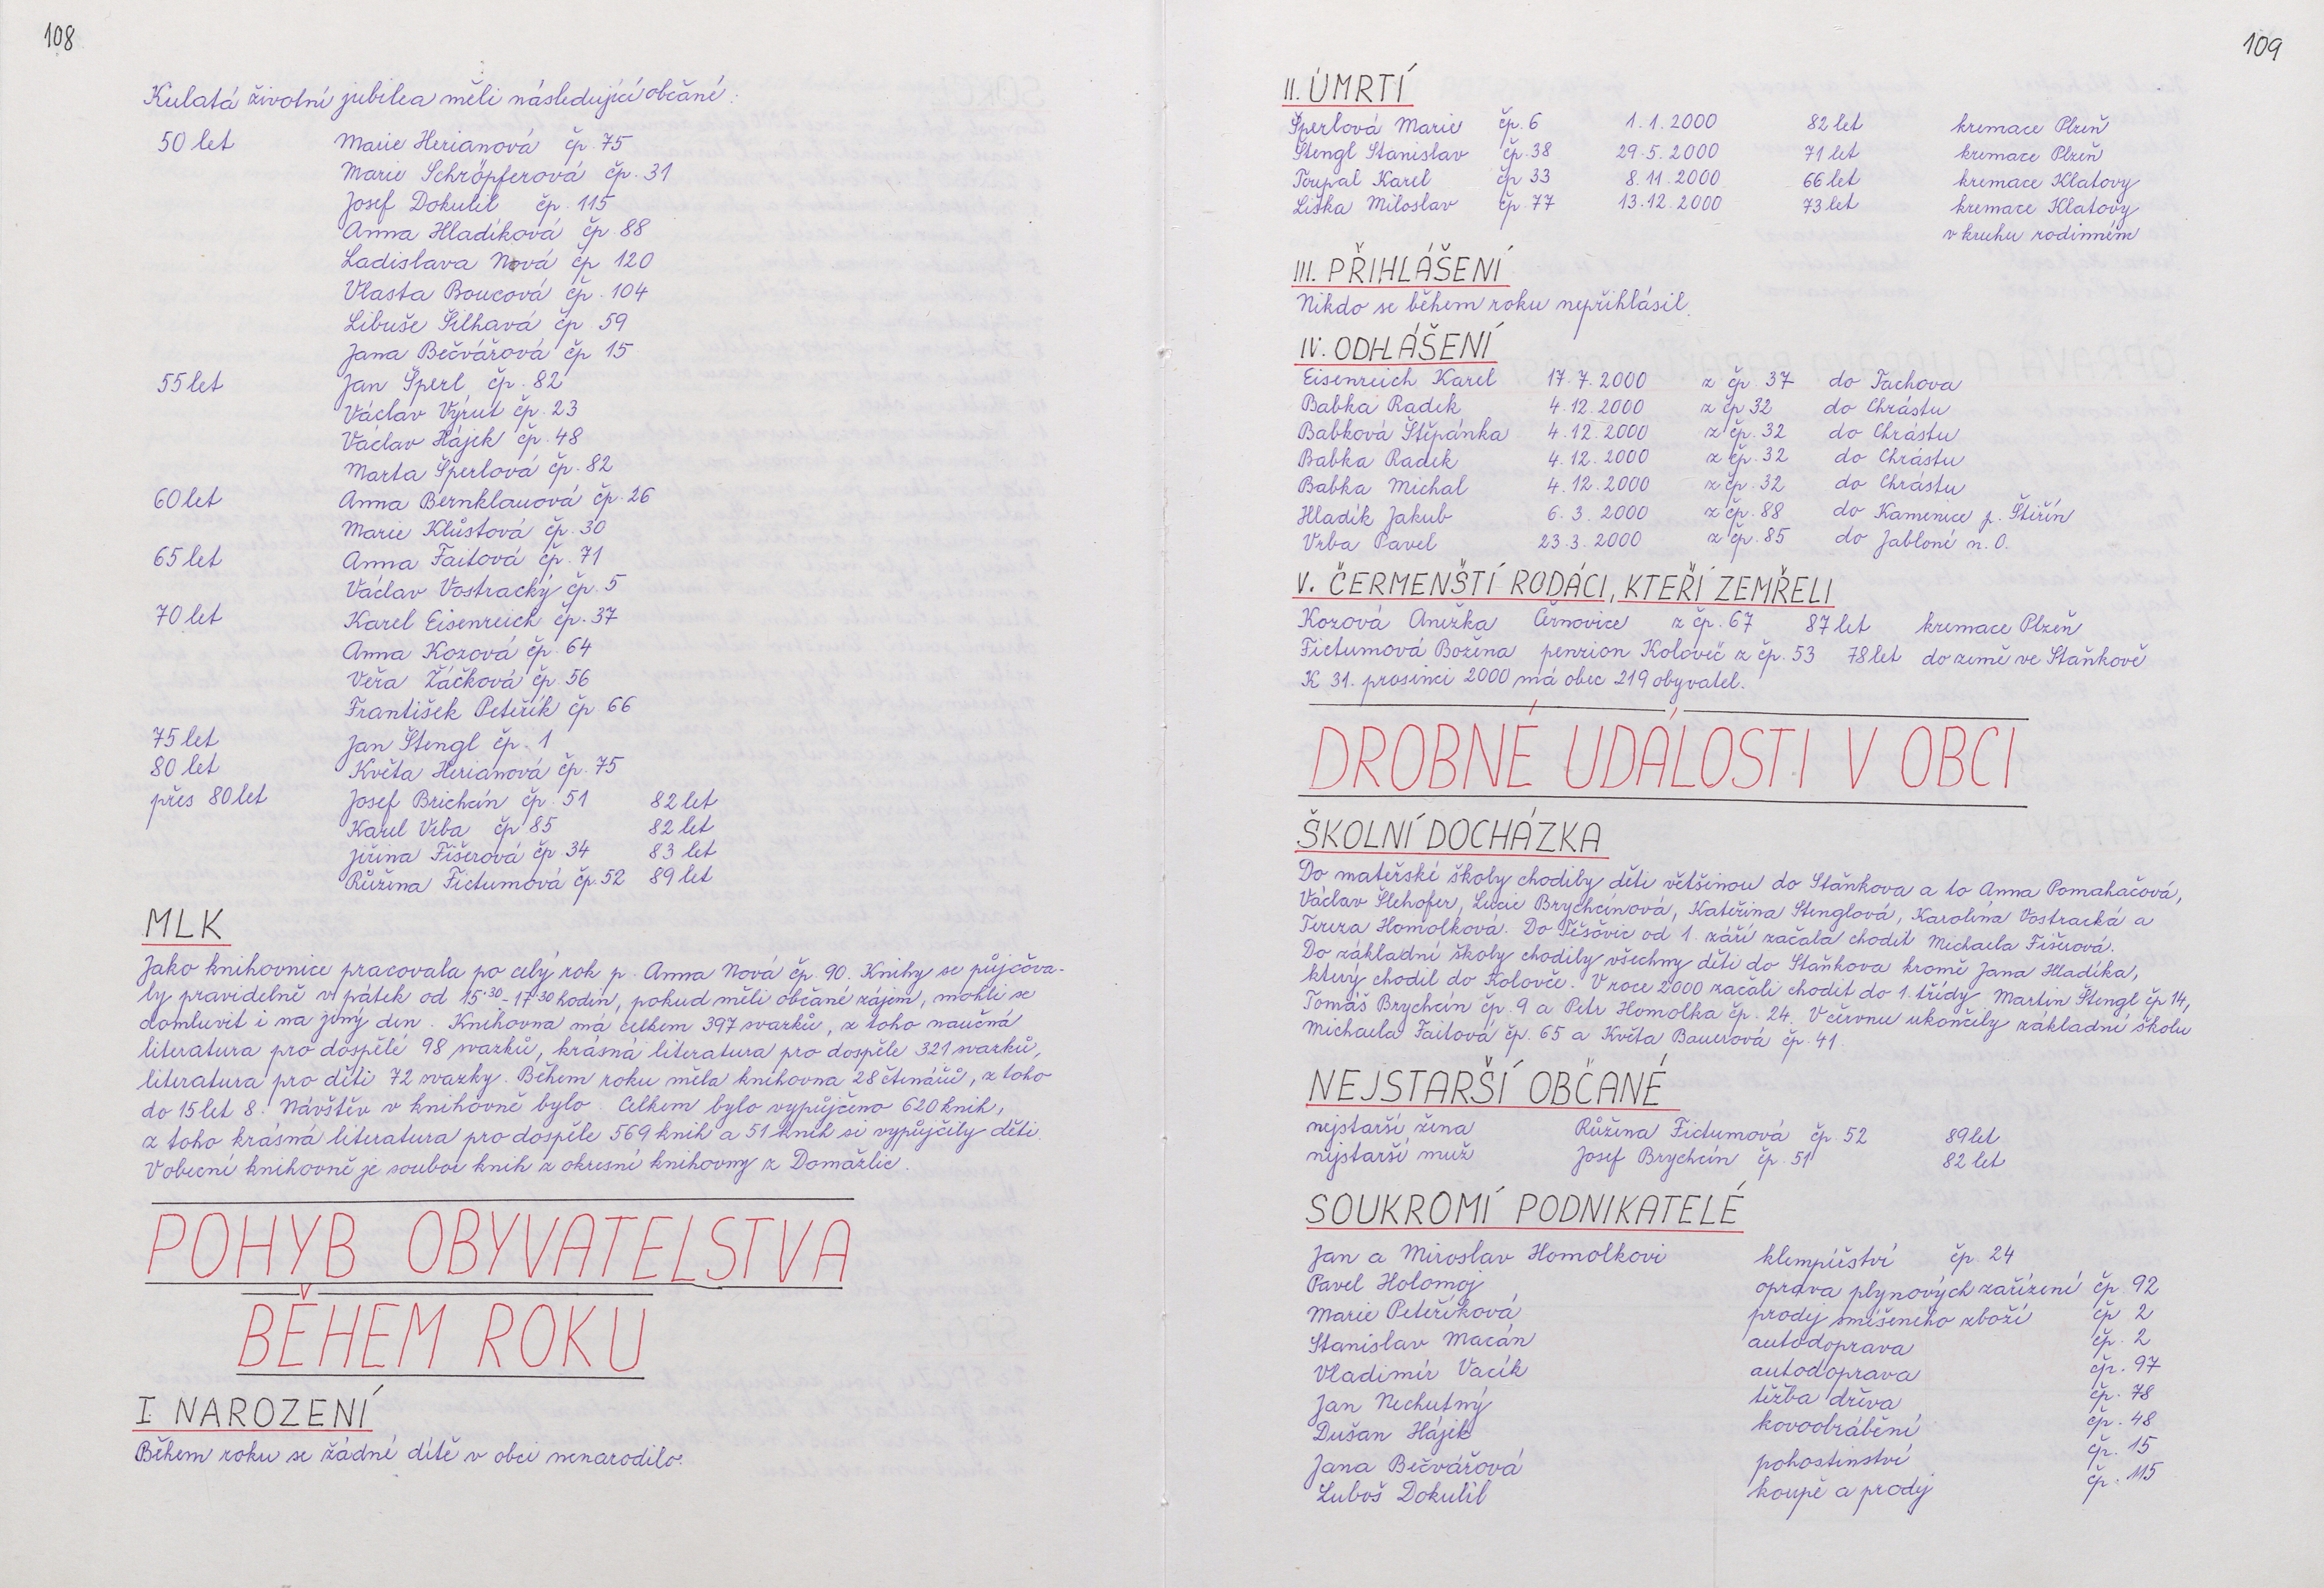 108
Kulatá životní jubilea měli následující občané:
50 let Marie Herianová čp. 75
Marie Schröpferová čp. 31
Josef Dokulil čp. 115
Anna Hladíková čp 88
Ladislava Nová čp 120
Vlasta Boucová čp. 104
Libuše Šilhavá čp. 59
Jana Bečvářová čp 15
55 let Jan Šperl čp. 82
Václav Výrut čp. 23
Václav Hájek čp. 48
Marta Šperlová čp. 82
60 let Anna Bernklauová čp. 26
Marie Klůstová čp. 30
65 let Anna Faitová čp. 71
Václav Vostracký čp. 5
70 let Karel Eisenreich čp. 37
Anna Kozová čp. 64
Věra Žáčková čp. 56
František Peteřík čp 66
75 let Jan Štengl čp. 1
80 let Květa Herianová čp. 75
přes 80 let Josef Brichcín čp. 51 82 let
Karel Vrba čp 85 82 let
Jiřina Fišerová čp. 34 83 let
Růžena Fictumová čp. 52 89 let
MLK
Jako knihovnice pracovala po celý rok p. Anna Nová čp. 90. Knihy se půjčova-
ly pravidelně v pátek od 15.30-17.30 hodin, pokud měli občané zájem, mohli se
domluvit i na jiný den. Knihovna má celkem 397 svazků, z toho naučná
literatura pro dospělé 98 svazků, krásná literatura pro dospěle 321 svazků,
literatura pro děti 72 svazky. Během roku měla knihovna 28 čtenářů, z toho
do 15 let 8. Návštěv v knihovně bylo. Celkem bylo vypůjčeno 620 knih,
z toho krásná literatura pro dospěle 569 knih a 51 knih si vypůjčily děti.
V obecní knihovně je soubor knih z okresní knihovny z Domažlic.
POHYB OBYVATELSTVA
BĚHEM ROKU
I NAROZENÍ
Během roku se žádné dítě v obci nenarodilo.
109
II. ÚMRTÍ
Šperlová Marie čp. 6 1.1.2000 82 let kremace Plzeň
Štengl Stanislav čp. 38 29.5.2000 71 let kremace Plzeň
Toupal Karel čp 33 8.11.2000 66 let kremace Klatovy
Liška Miloslav čp. 77 13.12.2000 73 let kremace Klatovy
v kruhu rodinném
III. PŘIHLÁŠENÍ
Nikdo se během roku nepřihlásil.
IV. ODHLÁŠENÍ
Eisenreich Karel 17.7.2000 z čp. 37 do Tachova
Babka Radek 4.12.2000 z čp 32 do Chrástu
Babková Štěpánka 4.12.2000 z čp. 32 do Chrástu
Babka Radek 4.12.2000 z čp. 32 do Chrástu
Babka Michal 4.12.2000 z čp. 32 do Chrástu
Hladík Jakub 6.3.2000 z čp. 88 do Kamenice p. Štiřín
Vrba Pavel 23.3.2000 z čp. 85 do Jabloné n. O.
V. ČERMENŠTÍ RODÁCI, KTEŘÍ ZEMŘELI
Kozová Anežka Černovice z čp. 67 87 let kremace Plzeň
Fictumová Božena penzion Koloveč z čp. 53 78 let do země ve Staňkově
K 31. prosinci 2000 má obec 219 obyvatel.
DROBNÉ UDÁLOSTI V OBCI
ŠKOLNÍ DOCHÁZKA
Do mateřské školy chodily děti většinou do Staňkova a to Anna Pomahačová,
Václav Šlehofer, Lucie Brychcínová, Kateřina Stenglová, Karolína Vostracká a
Tereza Homolková. Do Těšovic od 1. září začala chodit Michaela Fišerová.
Do základní školy chodily všechny děti do Staňkova kromě Jana Hladíka,
který chodil do Kolovče. V roce 2000 začali chodit do 1. třídy Martin Štengl čp 14,
Tomáš Brychcín čp. 9 a Petr Homolka čp. 24. V červnu ukončily základní školu
Michaela Faitová čp. 65 a Květa Bauerová čp. 41.
NEJSTARŠÍ OBČANÉ
nejstarší žena Růžena Fictumová čp. 52 89 let
nejstarší muž Josef Brychcín čp. 51 82 let
SOUKROMÍ PODNIKATELÉ
Jan a Miroslav Homolkovi klempířství čp. 24
Pavel Holomoj oprava plynových zařízení čp. 92
Marie Peteříková prodej smíšeného zboží čp 2
Stanislav Macán autodoprava čp. 2
Vladimír Vacík autodoprava čp. 97
Jan Nechutný těžba dřeva čp. 78
Dušan Hájek kovoobrábění čp. 48
Jana Bečvářová pohostinství čp. 15
Luboš Dokulil koupě a prodej čp. 115